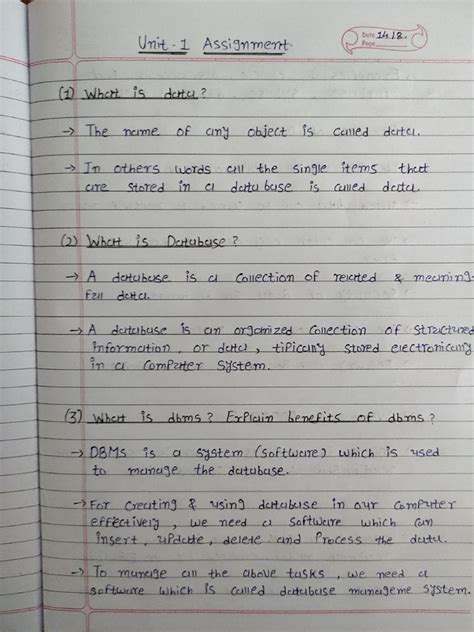 Unit-1 Assignment
Date 14.18.
Page
(1) What is data?
→ The name of any object is called data.
→ In others words all the single items that
are stored in a data base is called data.
(2) What is Database?
→ A database is a Collection of related & meaning-
full data.
→ A database is an organized Collection of Structured
information, or data, tipically stored electronically
in a Computer System.
(3) What is dbms? Explain benefits of dbms?
→ DBMs is a system (software) which is used
to manage the database.
→ For Creating & using database in our Computer
effectively, we need a Software which Can
insert, update, delete and Process the data.
→ To manage all the above tasks, we need a
software which is called database manageme system.